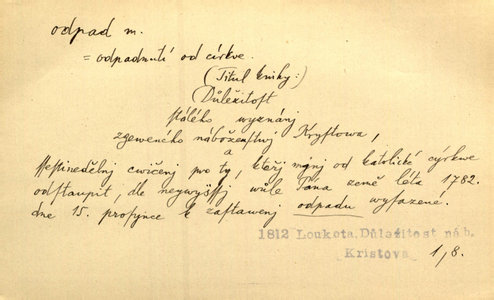 odpad m.
= odpadnutí od církve.
(Titul knihy:)
Důležitost
stálého wyznánj
zgeweného náboženstwj Krystowa,
a
ssestinedělnj cwičenj pro ty, kteřj mánj od katolické cýrkwe
odstaupit, dle neywyššj wůle Pána země léta 1782.
dne 15. prosynce k zastawenj odpadu wysazené.
1812 Loukota.Důležitost náb.
Kristova
1/8.